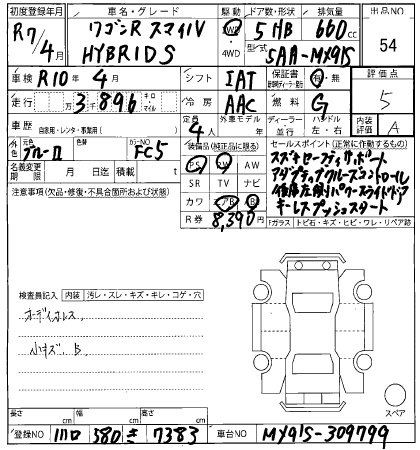 初度登録年月 車名・グレード 駆動 ドア数・形状 排気量 出品NO
R7/4月 ワゴンR スマイル HYBRID S 2WD・4WD 5 HB 660cc 54
型式 5AA-MX91S
車検 R10年4月 シフト IAT 保証書 有・無 評価点
走行 万 3千896 キロ・マイル 冷房 AAC 燃料 G 5
車歴 自家用・レンタ・事業用( ) 定員 4人 外車モデル ディーラー・並行 ハンドル 左・右 内装評価 A
外色 元色 ブルーII 色替 カラーNO FC5
装備品(純正品に限る) セールスポイント(正常に作動するもの)
名義変更期限 月 日 積載 t
PS PW AW
SR TV ナビ
カワ エアB
R券 8,390円
スズキセーフティサポート
アダプティブクルーズコントロール
後席左側パワースライドドア
キーレスプッシュスタート
Fガラス トビ石・キズ・ヒビ・ワレ・リペア跡
注意事項(欠品・修復・不具合箇所および状態)
検査員記入 内装 汚レ・スレ・キズ・キレ・コゲ・穴
オーディオレス
小キズ B
スペア
長さ cm 幅 cm 高さ cm
登録NO 川口 580 き 7383 車台NO MX91S-309799